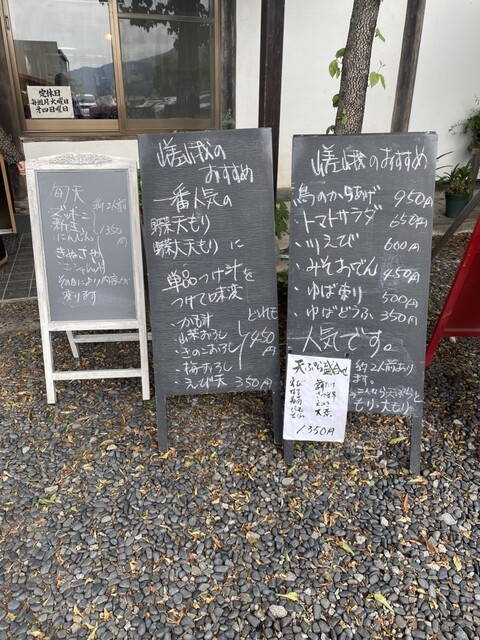 定休日
毎週月火曜日
旬天
ズッキーニ
新生
にんじん
約2人前
1350円
きゃさや
その日により内容が
変ります
嵯峨の
おすすめ
一番人気の
野菜天もり
野菜天もりに
単品つけ汁を
つけて味変
・かも汁
・山菜おろし
・きのこおろし
・梅おろし
どれでも
450円
・えび天 350円
嵯峨のおすすめ
・鳥のからあげ 950円
・トマトサラダ 650円
・川えび 600円
・みそおでん 450円
・ゆば刺り 500円
・ゆばどうふ 350円
人気です。
天ぷら盛合せ
えび
大葉
1350円
約2人前あり
ます。
天ぷらと
もり・大もり